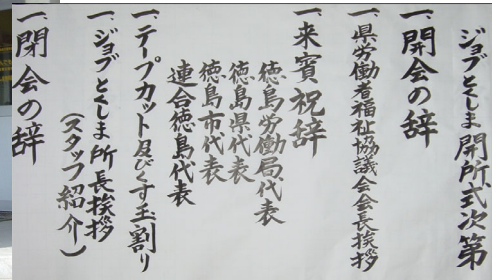 ジョブとくしま開所式次第
一、開会の辞
一、県労働者福祉協議会会長挨拶
一、来賓祝辞
徳島労働局代表
徳島県代表
徳島市代表
連合徳島代表
一、テープカット及びくす玉割り
一、ジョブとくしま所長挨拶
（スタッフ紹介）
一、閉会の辞